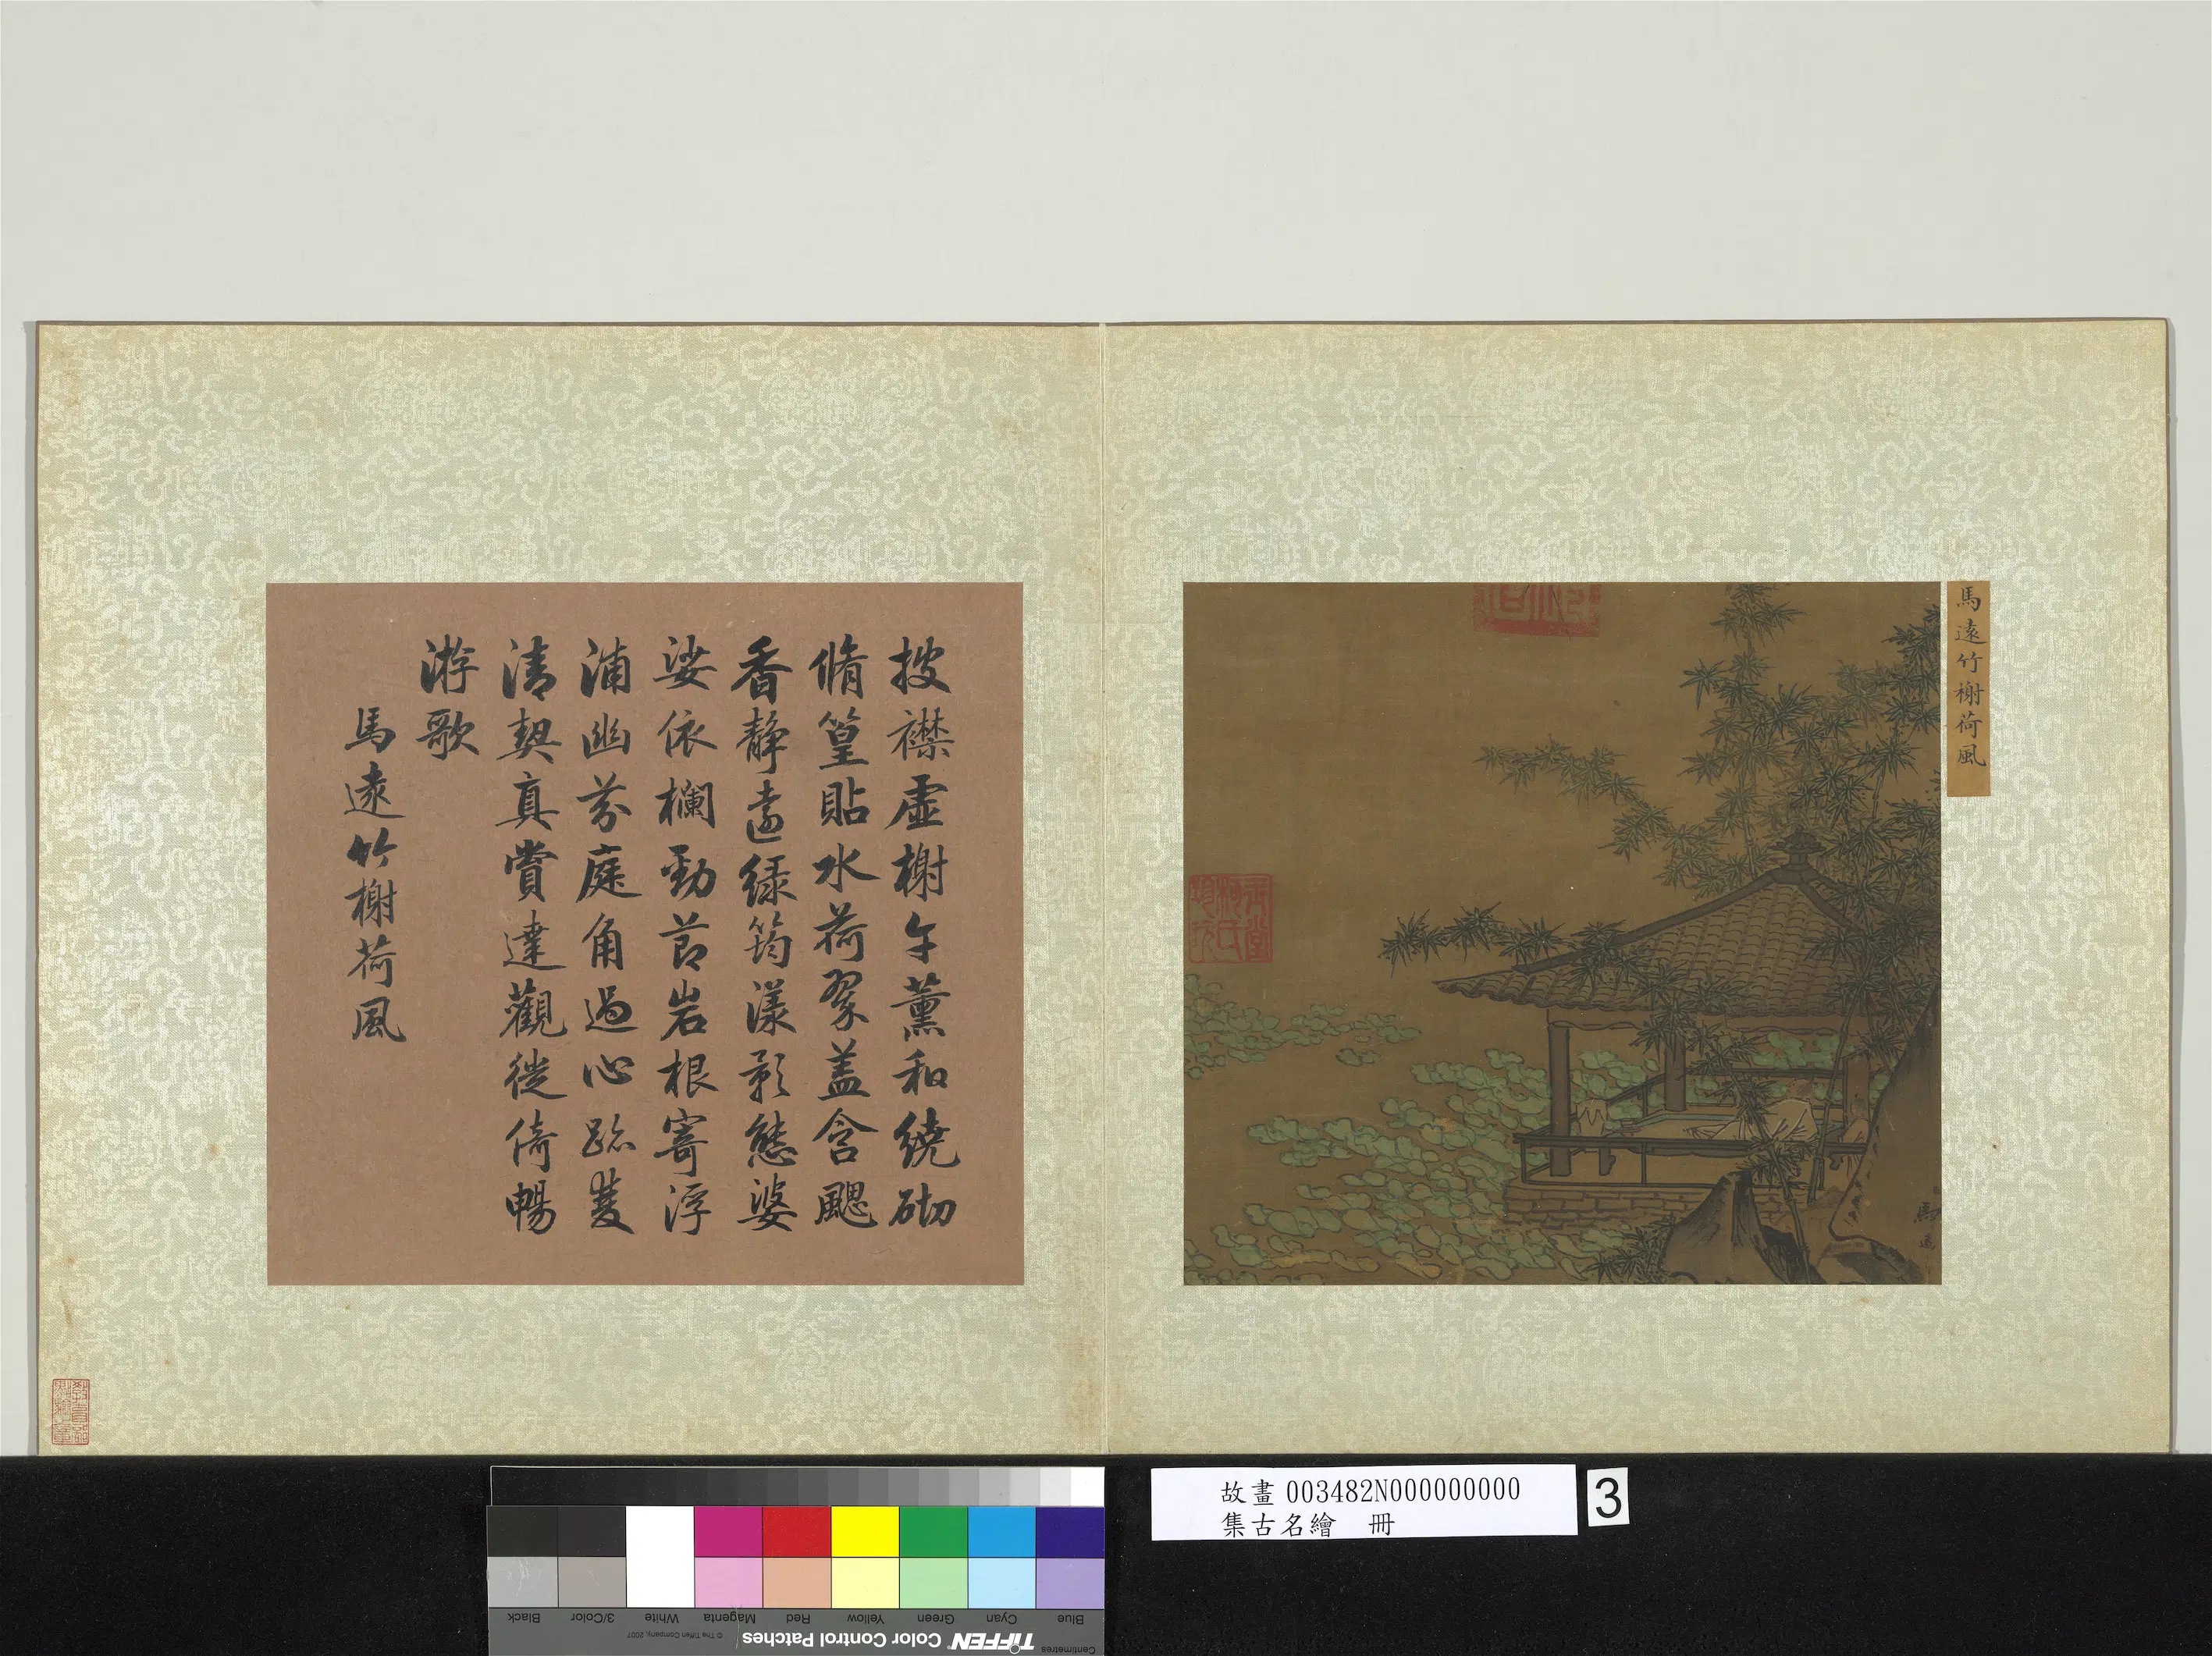 馬遠竹榭荷風
馬遠
披襟虛榭午薰和繞砌
脩篁貼水荷翠蓋含颸
香靜遠綠筠漾影態婆
娑依欄勁節岩根寄浮
浦幽芬庭角過心跡雙
清契真賞達觀徙倚暢
游歌
馬遠竹榭荷風
故畫 003482N000000000
集古名繪 冊
3
Blue
Cyan
Green
Yellow
Red
Magenta
White
3/Color
Black
Centimetres
TIFFEN Color Control Patches
© The Tiffen Company, 2007